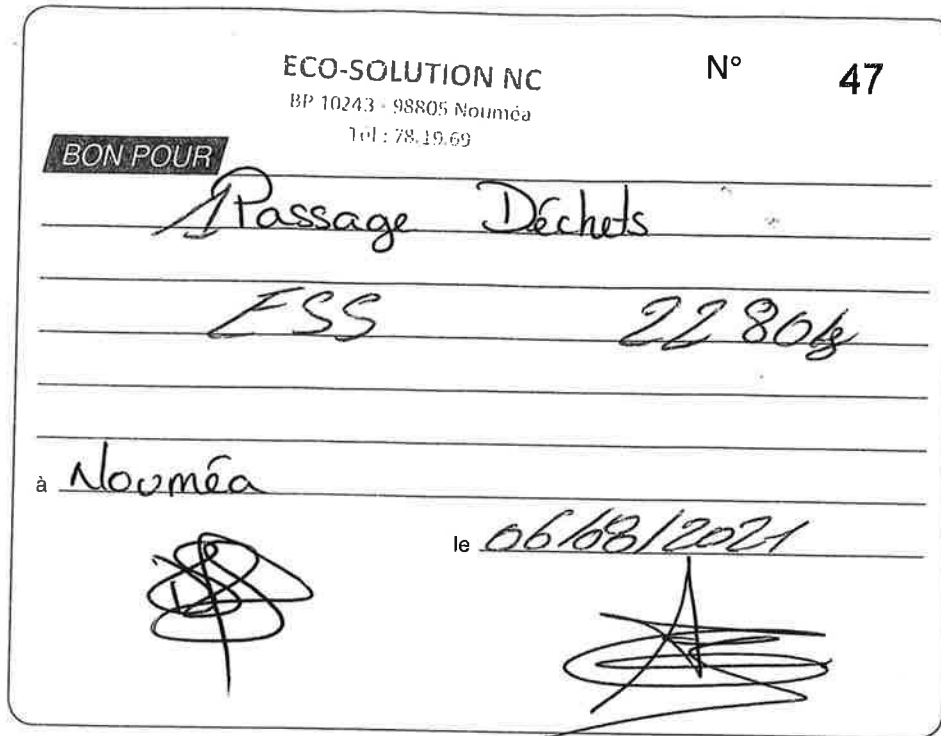 ECO-SOLUTION NC
N° 47
BP 10243 - 98805 Nouméa
Tél : 78.19.69
BON POUR
1 Passage Déchets
ESS 2280kg
à Nouméa
le 06/08/2021